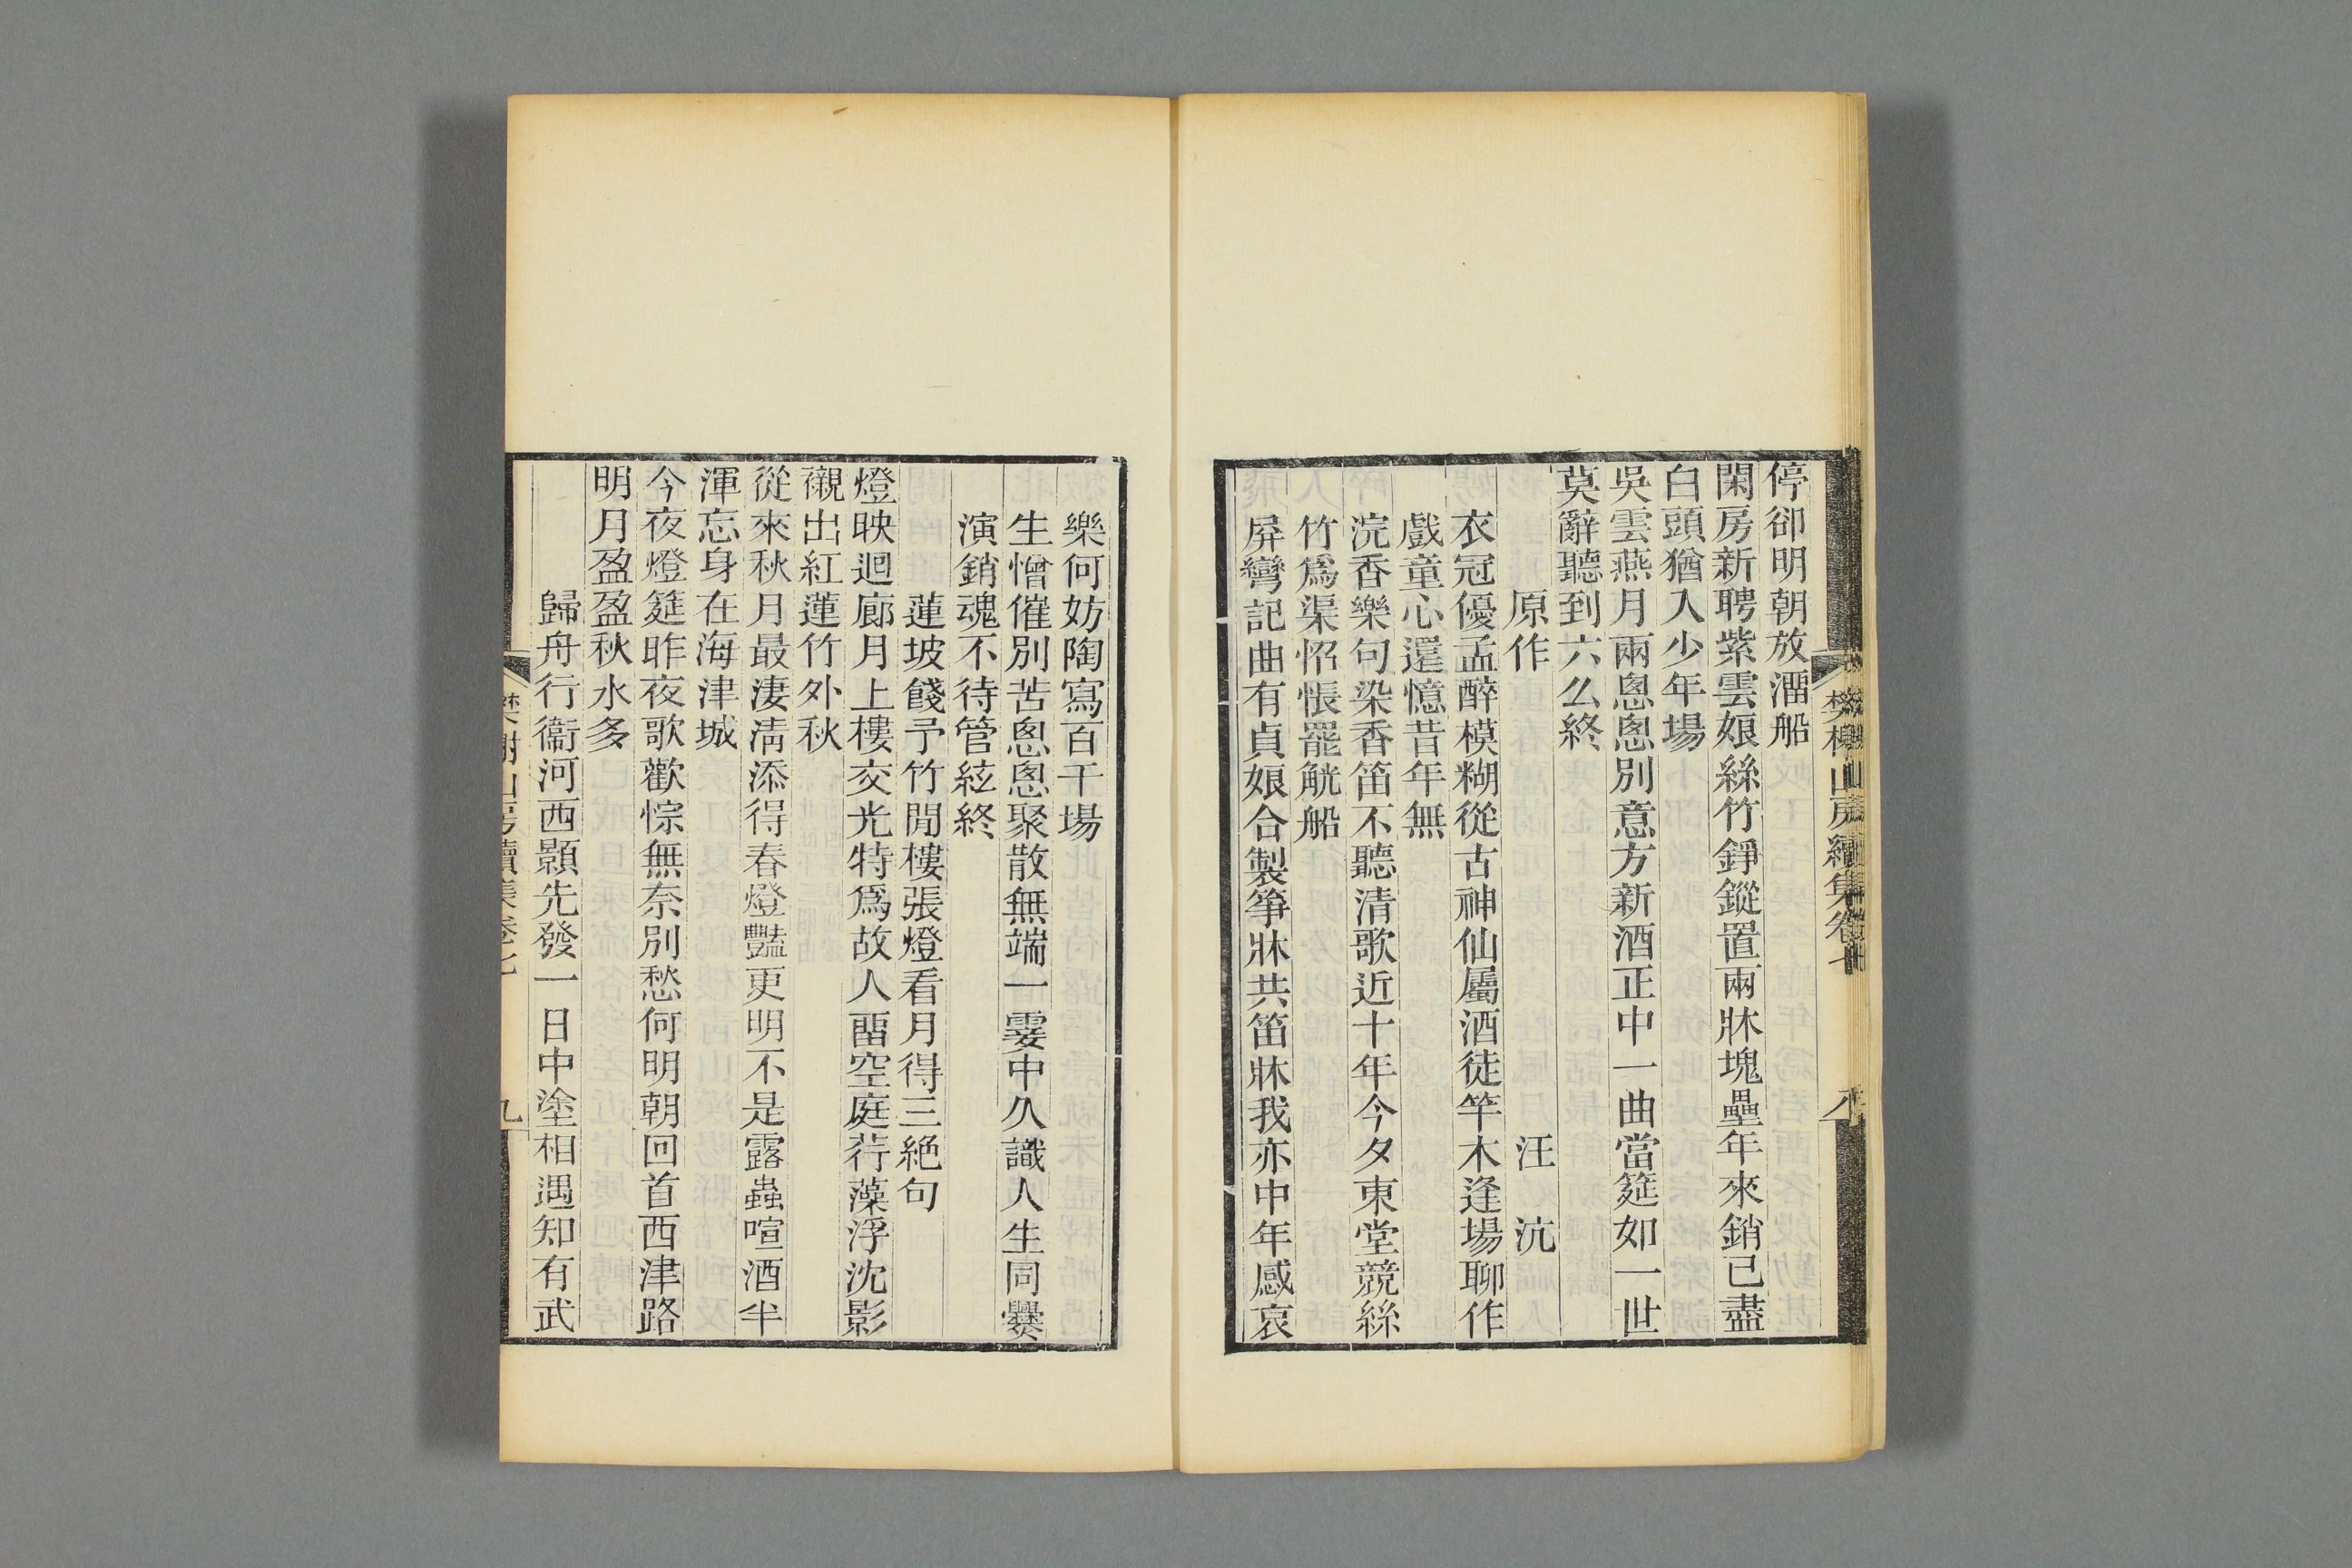 停卻明朝放溜船
閑房新聘紫雲娘絲竹錚鏦置兩牀塊壘年來銷已盡
白頭猶入少年場
吳雲燕月兩悤悤別意方新酒正中一曲當筵如一世
莫辭聽到六么終
原作 汪沆
衣冠優孟醉模糊從古神仙屬酒徒竿木逢場聊作
戲童心還憶昔年無
浣香樂句染香笛不聽清歌近十年今夕東堂競絲
竹爲渠怊悵罷觥船
屏彎記曲有貞娘合製箏牀共笛牀我亦中年感哀
樊榭山房續集卷七
八
樂何妨陶寫百千場
生憎催別苦悤悤聚散無端一霎中久識人生同爨
演銷魂不待管絃終
蓮坡餞予竹閒樓張燈看月得三絕句
燈映迴廊月上樓交光特爲故人畱空庭荇藻浮沈影
襯出紅蓮竹外秋
從來秋月最淒清添得春燈豔更明不是露蟲喧酒半
渾忘身在海津城
今夜燈筵昨夜歌歡悰無奈別愁何明朝回首西津路
明月盈盈秋水多
歸舟行衞河西顥先發一日中塗相遇知有武
樊榭山房續集卷七
九